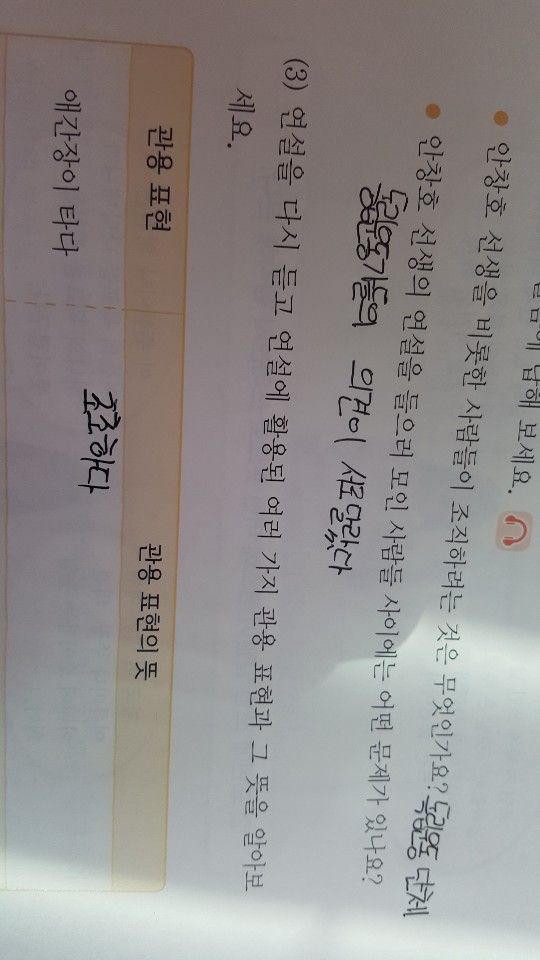 답해 보세요.
안창호 선생을 비롯한 사람들이 조직하려는 것은 무엇인가요? 독립운동 단체
안창호 선생의 연설을 들으러 모인 사람들 사이에는 어떤 문제가 있나요?
의견이 서로 달랐다
(3) 연설을 다시 듣고 연설에 활용된 여러 가지 관용 표현과 그 뜻을 알아보
세요.
관용 표현 관용 표현의 뜻
애간장이 타다 초조하다